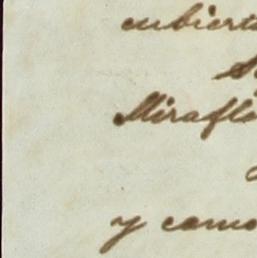 cubierta
S
Miraflo
y como